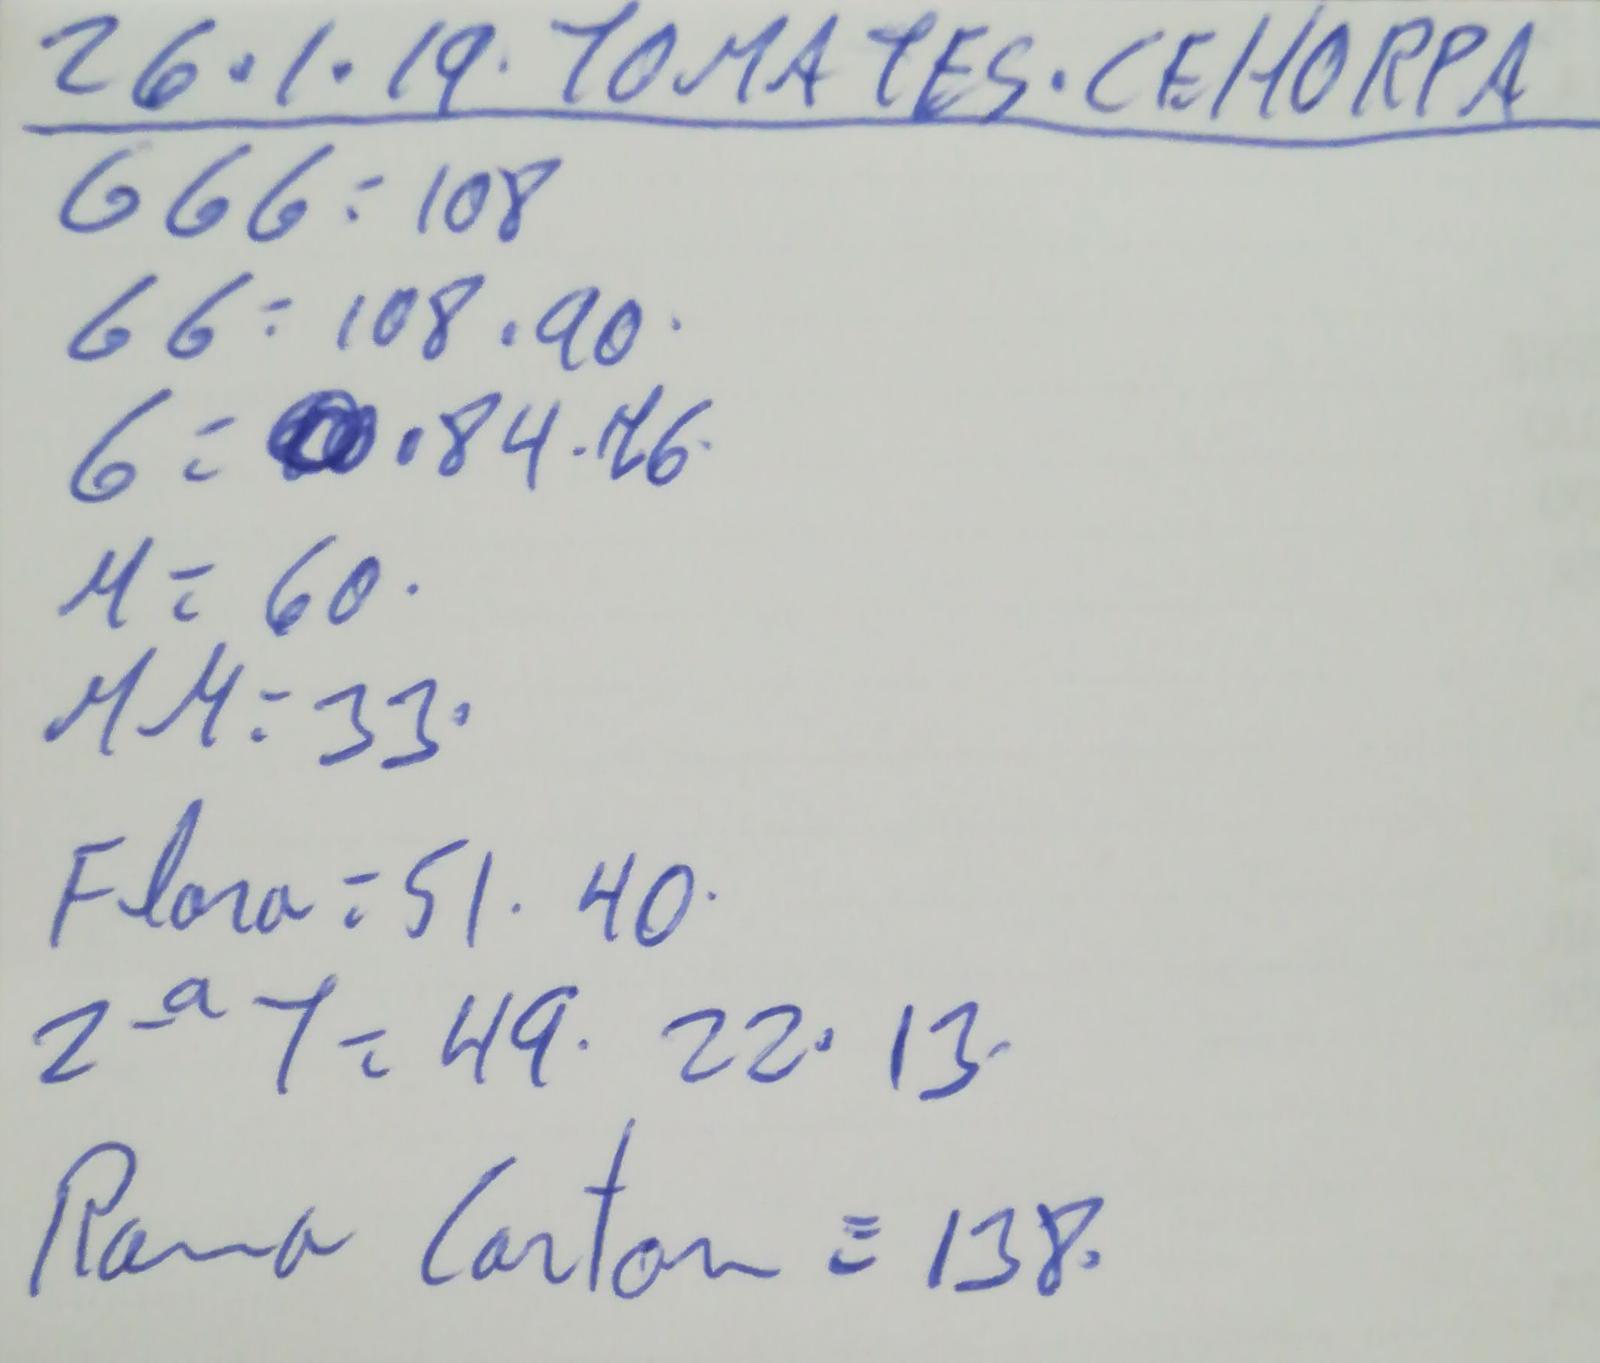 26.1.19. TOMATES. CEHORPA
GGG = 108
GG = 108.90.
G = .84.76.
M = 60.
MM = 33.
Flora = 51. 40.
2ª T = 49. 22. 13.
Rama Carton = 138.